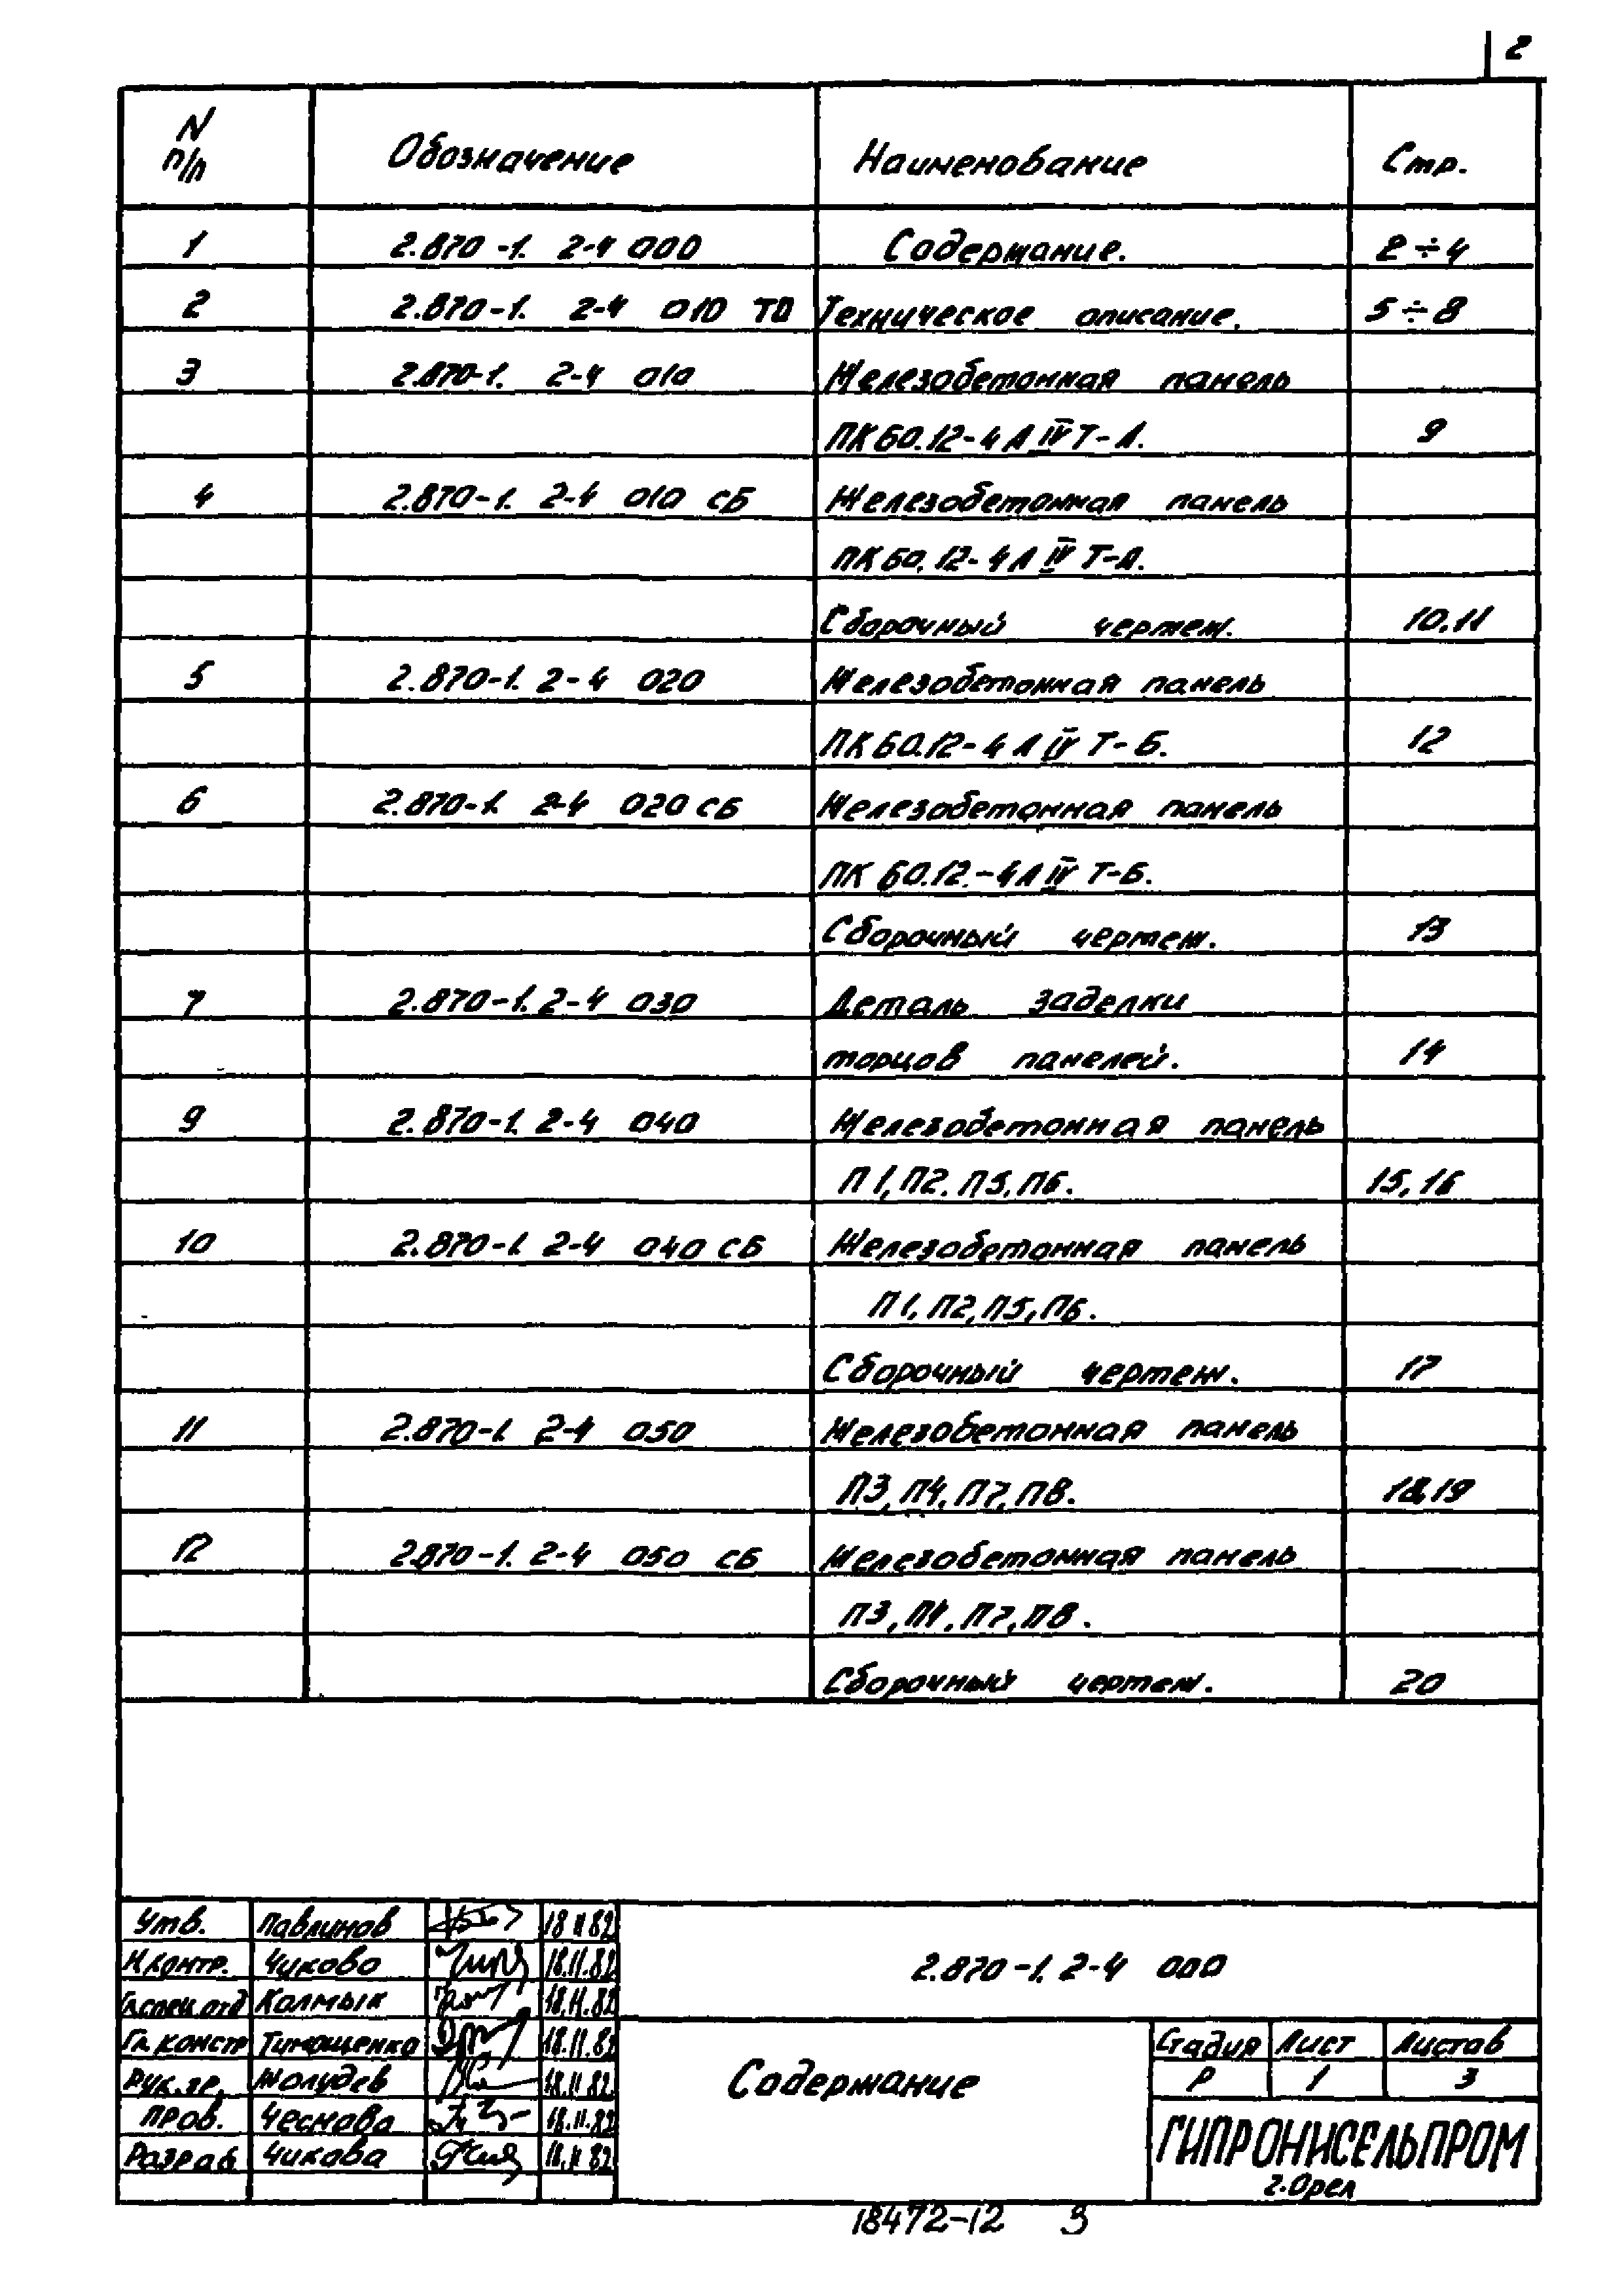 2
N п/п Обозначение Наименование Стр.
1 2.870-1. 2-4 000 Содержание. 2÷4
2 2.870-1. 2-4 010 ТО Техническое описание. 5÷8
3 2.870-1. 2-4 010 Железобетонная панель
ПК 60.12-4 А IV Т-А. 9
4 2.870-1. 2-4 010 СБ Железобетонная панель
ПК 60.12-4 А IV Т-А.
Сборочный чертеж. 10,11
5 2.870-1. 2-4 020 Железобетонная панель
ПК 60.12-4 А IV Т-Б. 12
6 2.870-1. 2-4 020 СБ Железобетонная панель
ПК 60.12.-4 А IV Т-Б.
Сборочный чертеж. 13
7 2.870-1. 2-4 030 Деталь заделки
торцов панелей. 14
9 2.870-1. 2-4 040 Железобетонная панель
П1, П2, П5, П6. 15, 16
10 2.870-1. 2-4 040 СБ Железобетонная панель
П1, П2, П5, П6.
Сборочный чертеж. 17
11 2.870-1. 2-4 050 Железобетонная панель
П3, П4, П7, П8. 18,19
12 2.870-1. 2-4 050 СБ Железобетонная панель
П3, П4, П7, П8.
Сборочный чертеж. 20
Утв. Павлинов 18.11.82
Н.контр. Чуково 18.11.82
Гл.спец.отд Калмык 18.11.82
Гл. констр Тимощенко 18.11.82
Рук.гр. Жолудев 18.11.82
Пров. Чеснова 18.11.82
Разраб Чикова 18.11.82
2.870-1. 2-4 000
Содержание
Стадия Лист Листов
Р 1 3
ГИПРОНИСЕЛЬПРОМ
г.Орел
18472-12 3